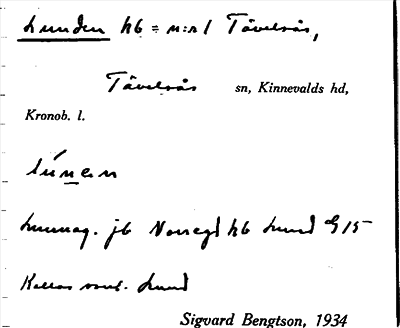 Lunden hb = n:r 1 Tävelsås,
Tävelsås sn, Kinnevalds hd,
Kronob. l.
lúnen
jb Norregd hb Lund G 15
Kallas vanl. Lund
Sigvard Bengtson, 1934